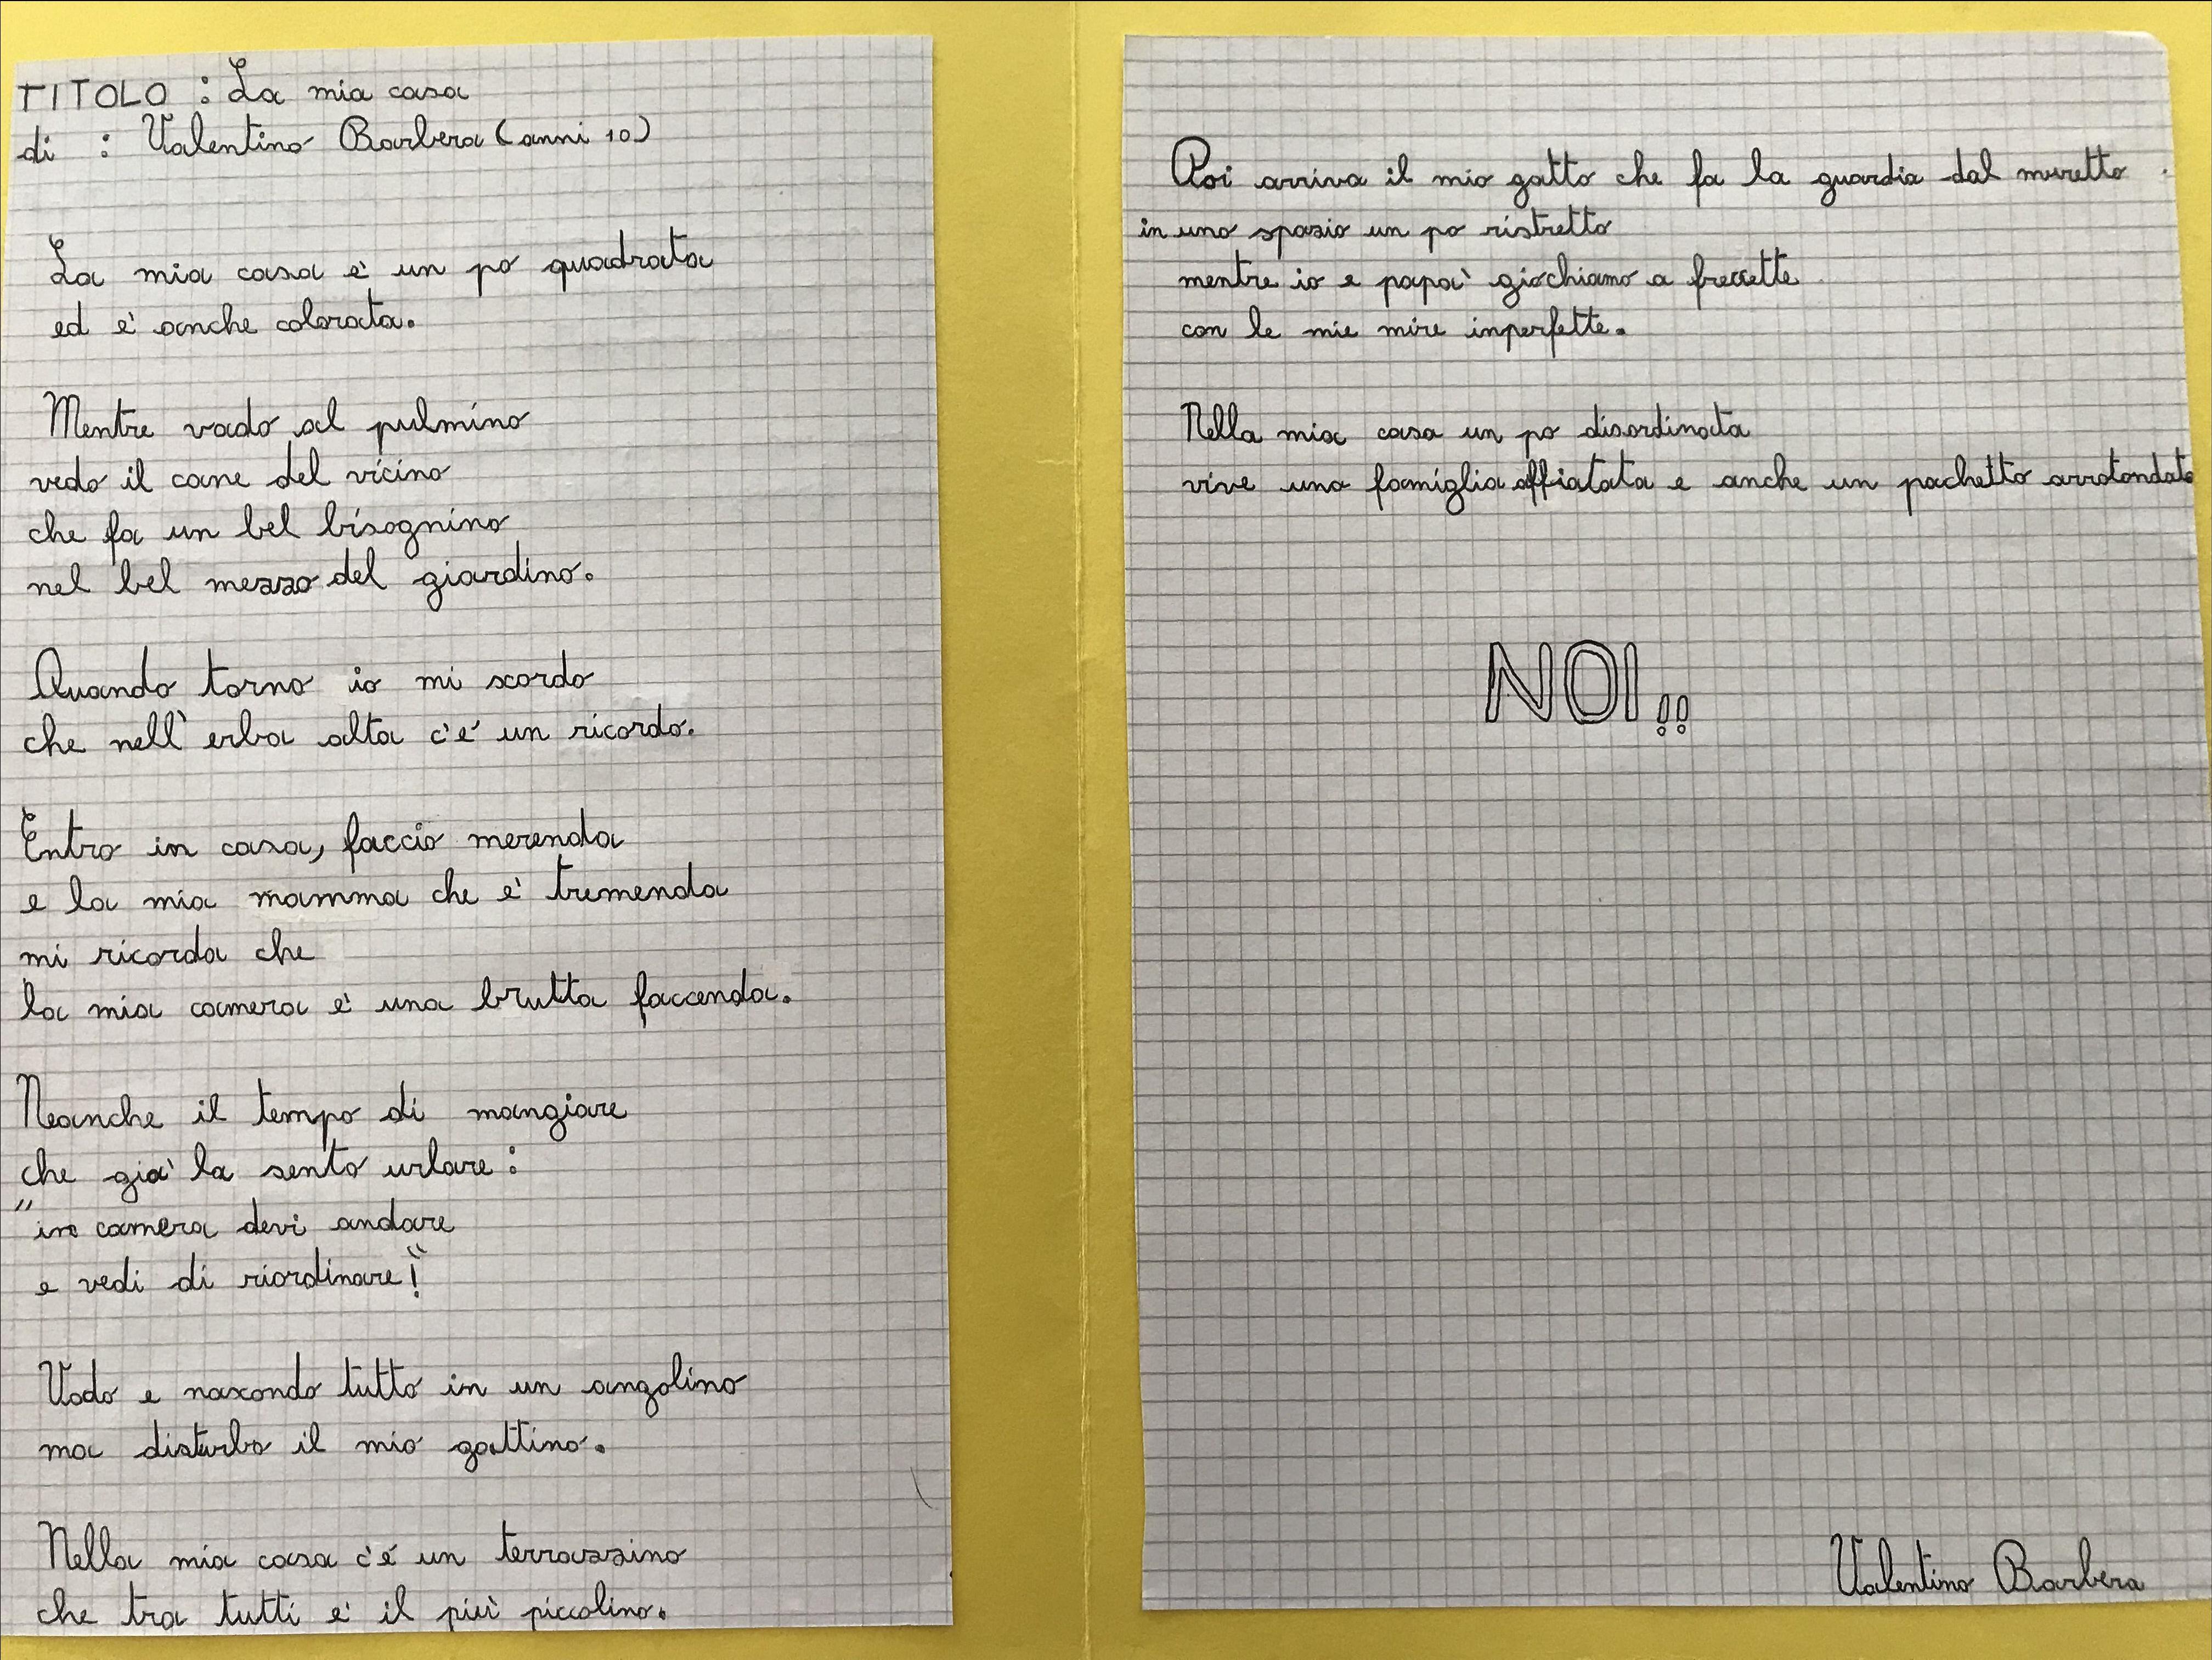 TITOLO : La mia casa
di : Valentino Barbera (anni 10)
La mia casa è un po quadrata
ed è anche colorata.
Mentre vado al pulmino
vedo il cane del vicino
che fa un bel bisognino
nel bel mezzo del giardino.
Quando torno io mi scordo
che nell'erba alta c'é un ricordo.
Entro in casa, faccio merenda
e la mia mamma che è tremenda
mi ricorda che
la mia camera è una brutta faccenda.
Neanche il tempo di mangiare
che già la sento urlare:
"in camera devi andare
e vedi di riordinare!"
Vado e nascondo tutto in un angolino
ma disturbo il mio gattino.
Nella mia casa c'é un terrazzino
che tra tutti è il più piccolino.
Poi arriva il mio gatto che fa la guardia dal muretto.
in uno spazio un po ristretto
mentre io e papà giochiamo a freccette
con le mie mire inperfette.
Nella mia casa un po disordinata
vive una famiglia affiatata e anche un pachetto arrotondato
NOI!!
Valentino Barbera